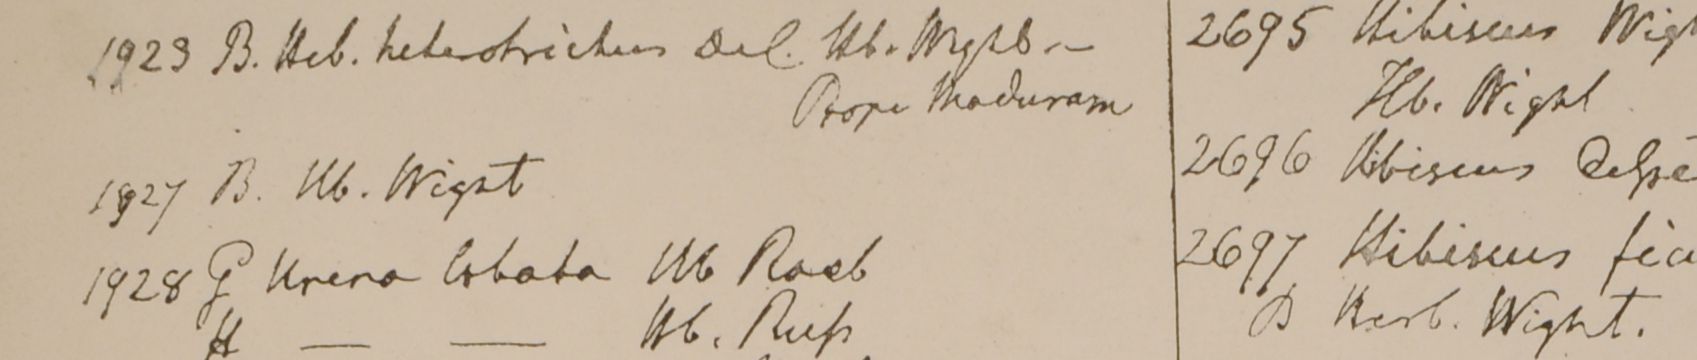 1923 B. Heb. heterotrichus Del. Hb. Wight —
Prope Maduram
1927 B. Hb. Wight
1928 G Urena lobata Hb Roxb
H — — Hb. Russ
2695 Hibiscus Wigh
Hb. Wight
2696 Hibiscus
2697 Hibiscus fic
B Herb. Wight.